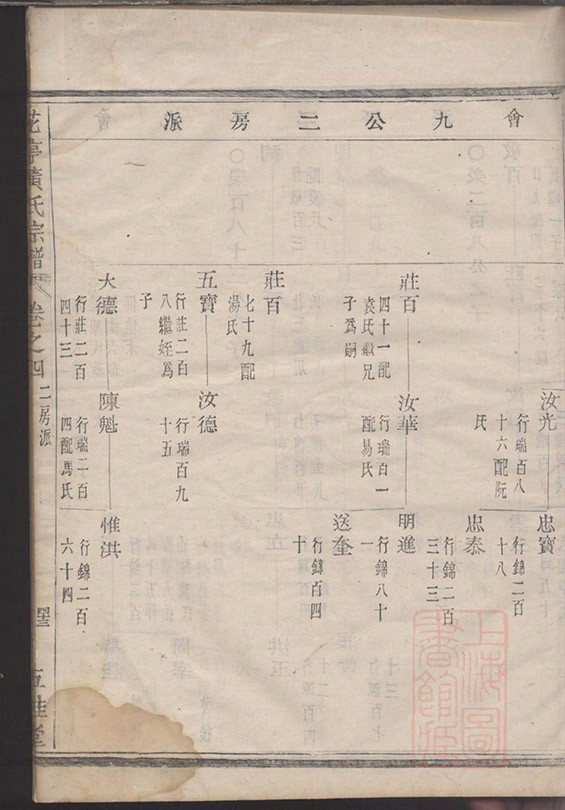 會九公二房派
汝光
行瑞百八
十六配阮
氏
忠寶
行錦二百
十八
忠泰
行錦二百
三十三
莊百
四十一配
袁氏繼兄
子爲嗣
汝華
行瑞百一
配易氏
明進
行錦八十
一
送奎
行錦百四
十
莊百
七十九配
湯氏
五寶
行莊二百
八繼姪爲
子
汝德
行瑞百九
十五
大德
行莊二百
四十三
陳魁
行瑞二百
四配馬氏
惟洪
行錦二百
六十四
花亭黃氏宗譜 卷之四 二房派 五桂堂
上海圖書館藏